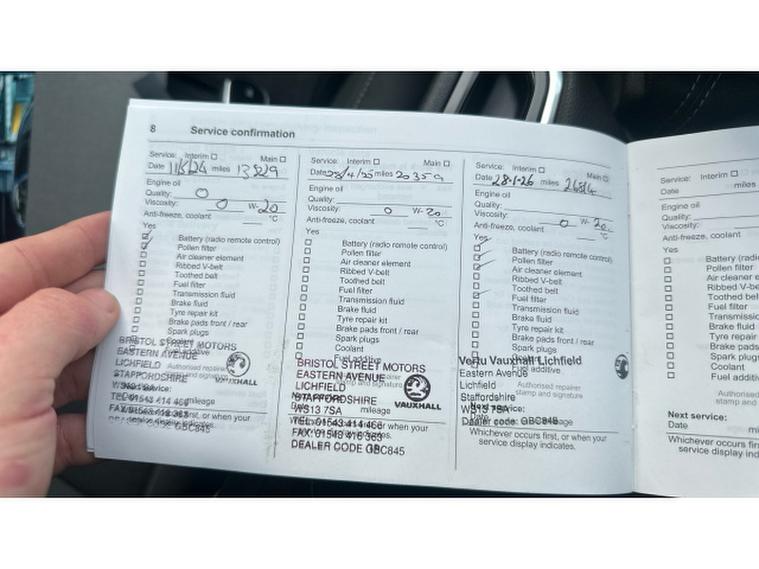 8 Service confirmation
Service: Interim ☐ Main ☐
Date 11/5/24 miles 13829
Engine oil
Quality: 0
Viscosity: 0 W- 20
Anti-freeze, coolant °C
Yes
Battery (radio remote control)
Pollen filter
Air cleaner element
Ribbed V-belt
Toothed belt
Fuel filter
Transmission fluid
Brake fluid
Tyre repair kit
Brake pads front / rear
Spark plugs
Coolant
Fuel additive
BRISTOL STREET MOTORS
EASTERN AVENUE
LICHFIELD
STAFFORDSHIRE
WS13 7SA
TEL: 01543 414 466
FAX: 01543 416 363
DEALER CODE GBC845
Authorised repairer
stamp and signature
VAUXHALL
Service: Interim ☐ Main ☐
Date 28/4/25 miles 20359
Engine oil
Quality:
Viscosity: 0 W- 20
Anti-freeze, coolant °C
Yes
Battery (radio remote control)
Pollen filter
Air cleaner element
Ribbed V-belt
Toothed belt
Fuel filter
Transmission fluid
Brake fluid
Tyre repair kit
Brake pads front / rear
Spark plugs
Coolant
Fuel additive
BRISTOL STREET MOTORS
EASTERN AVENUE
LICHFIELD
STAFFORDSHIRE
WS13 7SA
TEL: 01543 414 466
FAX: 01543 416 363
DEALER CODE GBC845
Authorised repairer
stamp and signature
VAUXHALL
mileage
Service: Interim ☐ Main ☐
Date 28-1-26 miles
Engine oil
Quality:
Viscosity: 0 W- 20
Anti-freeze, coolant °C
Yes
Battery (radio remote control)
Pollen filter
Air cleaner element
Ribbed V-belt
Toothed belt
Fuel filter
Transmission fluid
Brake fluid
Tyre repair kit
Brake pads front / rear
Spark plugs
Coolant
Fuel additive
Vertu Vauxhall Lichfield
Eastern Avenue
Lichfield
Staffordshire
WS13 7SA
Dealer code: GBC845
Authorised repairer
stamp and signature
mileage
Whichever occurs first, or when your
service display indicates.
Service: Interim ☐
Date miles
Engine oil
Quality:
Viscosity:
Anti-freeze, coolant
Yes
Battery (
Pollen filter
Air cleaner
Ribbed
Toothed
Fuel filter
Transmission
Brake fluid
Tyre repair
Brake pads
Spark plugs
Coolant
Fuel additive
Authorised
stamp and
Next service:
Date
Whichever occurs first
service display